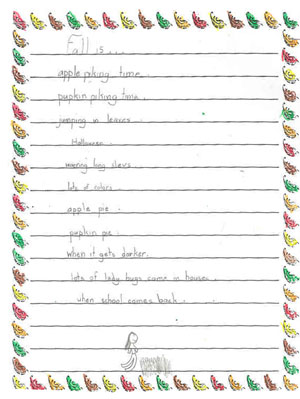 Fall is...
apple piking time.
pupkin piking time.
jumping in leaves.
Halloween
wearing long slevs.
lots of colors.
apple pie.
pupkin pie.
when it gets darker.
lots of lady bugs came in houses.
when school comes back.